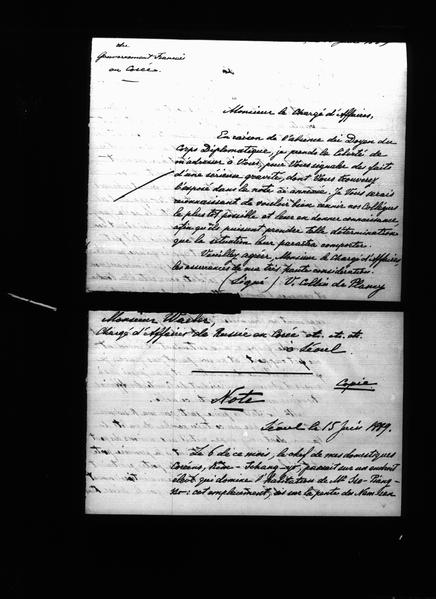 du
Gouvernement Français
en Corée.
Monsieur le Chargé d'Affaires,
En raison de l'absence du Doyen du
Corps Diplomatique, je prends la liberté de
m'adresser à Vous, pour Vous signaler des faits
d'une sérieuse gravité, dont Vous trouverez
l'exposé dans la note ci annexée. Je Vous serais
reconnaissant de vouloir bien réunir nos Collègues
le plus tôt possible et leur en donner connaissance,
afin qu'ils puissent prendre telle détermination
que la situation leur paraîtra comporter.
Veuillez agréer, Monsieur le Chargé d'Affaires,
les assurances de ma très haute considération.
(Signé) V. Collin de Plancy
Monsieur Waeber
Chargé d'Affaires de Russie en Corée etc. etc. etc.
à Séoul.
Copie
Note
Séoul le 15 Juin 1889.
Le 6 de ce mois, le chef de mes domestiques
Coréens, Kim-Tchang-yt, passait sur un endroit
élevé qui domine l'habitation de Mr
cet emplacement, sis sur la pente du Nam-san